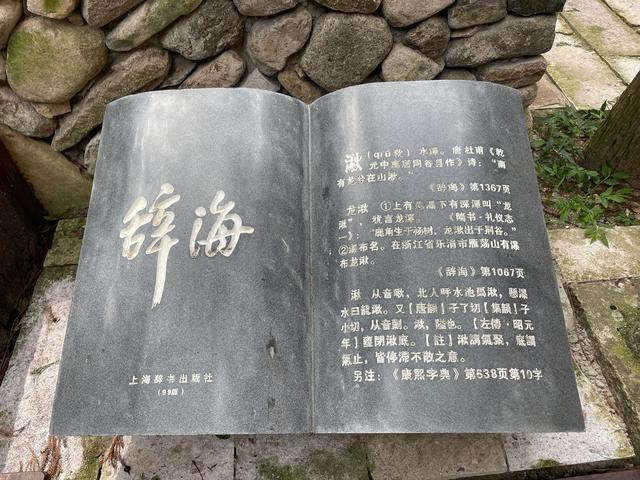 辞海
上海辞书出版社
(99版)
湫 (qiū秋) 水潭。唐杜甫《乾
元中寓居同谷县作》诗:“南
有龙兮在山湫。”
《辞海》第1367页
龙湫 ①上有悬瀑下有深潭叫“龙
湫”，犹言龙潭。《隋书·礼仪志
一》:“鹿角生于杨树，龙湫出于荆谷。”
②瀑布名。在浙江省乐清市雁荡山有瀑
布龙湫。
《辞海》第1067页
湫 从音啾，北人呼水池爲湫，懸瀑
水曰龍湫。又【唐韻】子了切【集韻】子
小切，从音剿。湫，隘也。【左傳·昭元
年】壅閉湫底。【註】湫謂氣聚，底謂
氣止，皆停滯不散之意。
另注:《康熙字典》第638页第10字